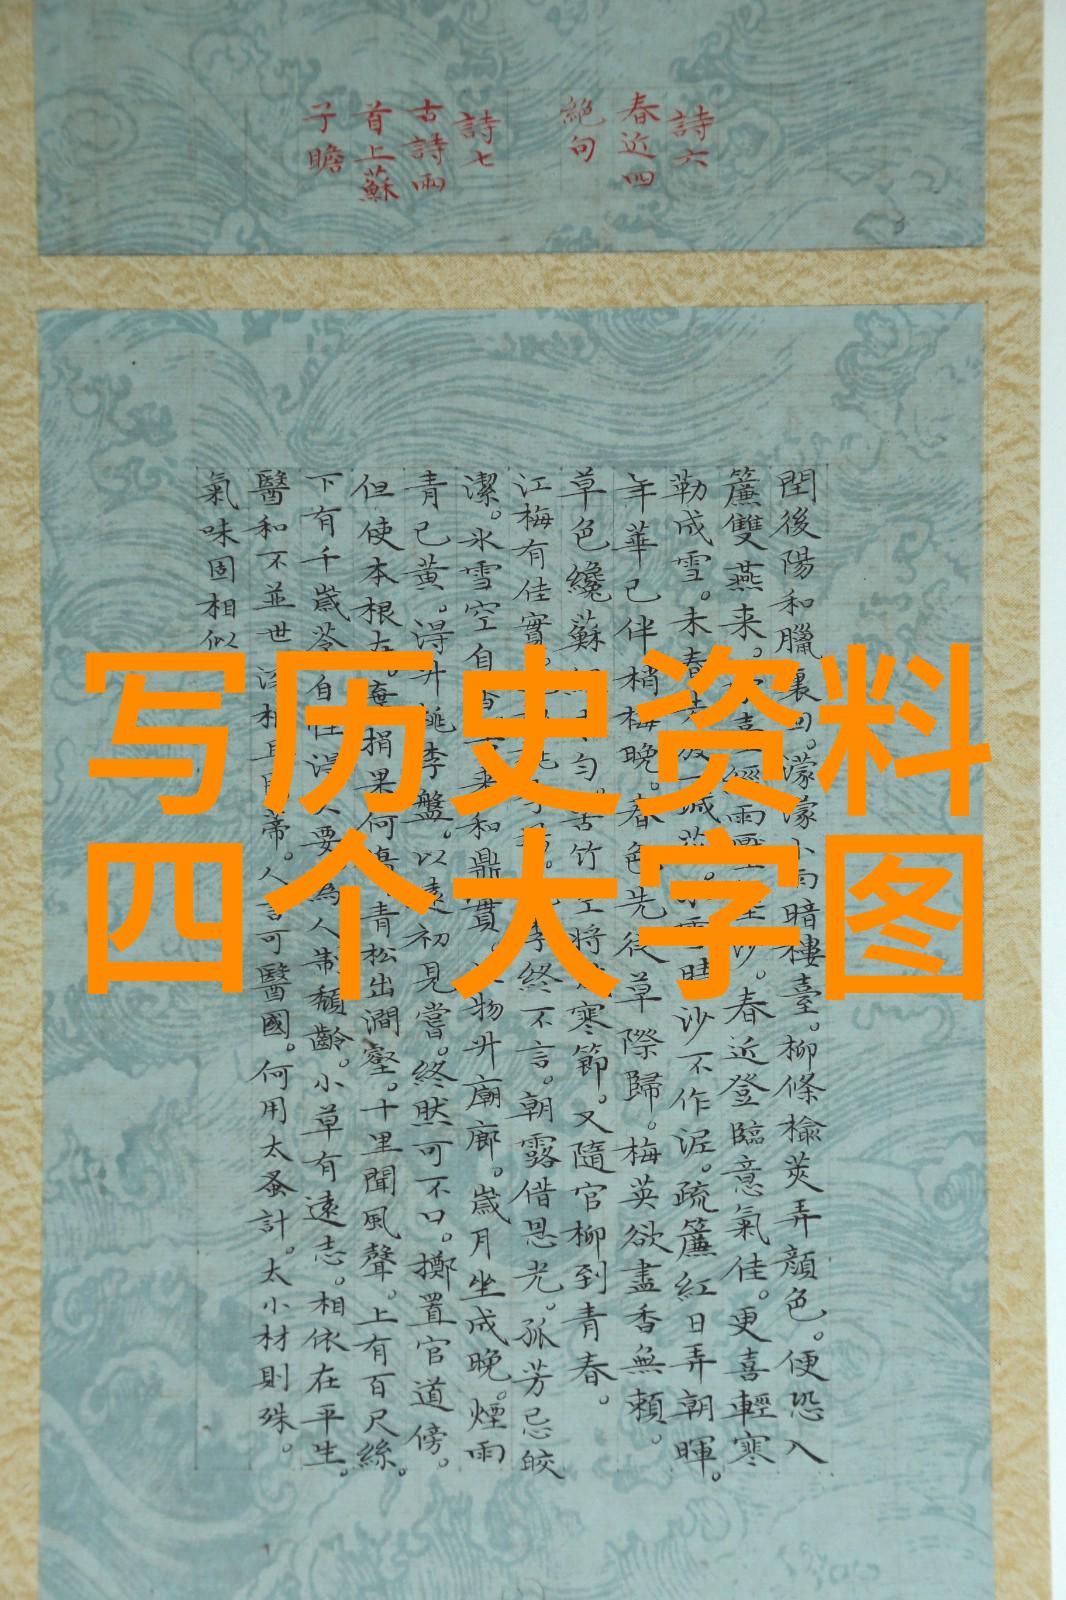 詩六
春近四
絶句
詩七
古詩兩
首上蘇
子瞻
閏後陽和臘裏回。濛濛小雨暗樓臺。柳條榆莢弄顏色。便恐入
簾雙燕来。經雨沙。春近登臨意氣佳。更喜輕寒
勒成雪。未春晴沙不作泥。疏簾紅日弄朝暉。
年華已伴梢梅晚。春色先從草際歸。梅英欲盡香無賴。
草色纔蘇勻。苦竹空將寒節。又隨官柳到青春。
江梅有佳實。李終不言。朝露借恩光。孤芳忌皎
潔。冰雪空自来和鼎實。物升廟廊。歲月坐成晚。煙雨
青已黃。得升桃李盤。以遠初見嘗。終然可不口。擲置官道傍。
但使本根在。棄捐果何傷。青松出澗壑。十里聞風聲。上有百尺絲。
下有千歲苓。自性得久要。為人制頹齡。小草有遠志。相依在平生。
醫和不並世。深根且固蒂。人言可醫國。何用太蚤計。大小材則殊。
氣味固相似
写历史资料
四个大字图